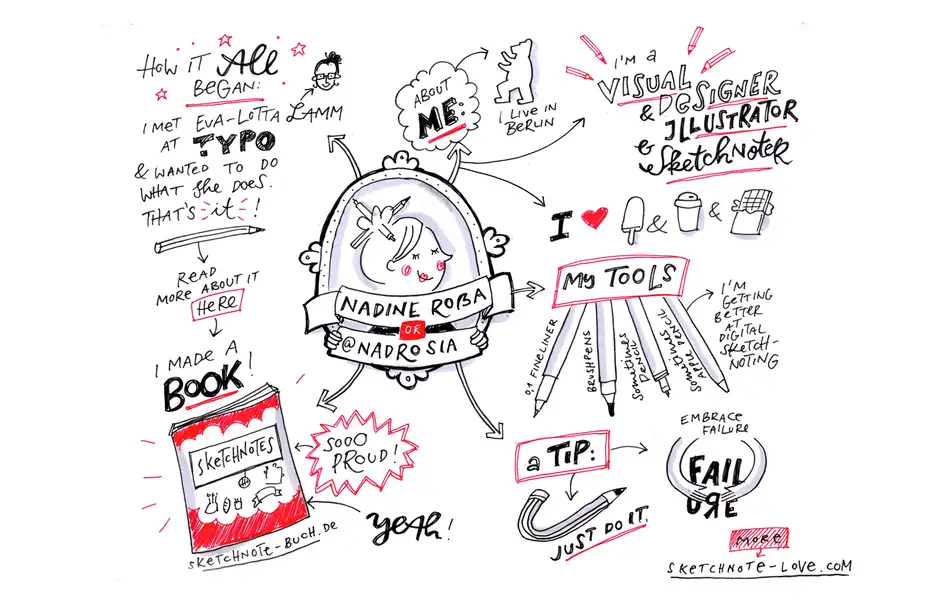 HOW IT All
BEGAN:
I MET EVA-LOTTA LAMM
AT TYPO
& WANTED TO DO
WHAT She DOES.
THAT'S it!
READ
MORE ABOUT IT
HERE
I MADE A
BOOK!
SKETCHNOTES
SKETCHNOTE-BUCH.DE
SOOO
PROUD!
yeAh!
ABOUT
ME:
I LIVE IN
BERLIN
I'M A
VISUAL
& DESIGNER
ILLUSTRATOR
& SKetchNoteR
I & &
NADINE ROßA
OR
@NADROSIA
My TOOLS
0.1 FINELINER
BRUSHPENS
Sometimes
PENCIL
sometimes
APPLE PENCIL
I'M
GETTING
BETTER
AT
DIGITAL
SKETCH-
NOTING
a TIP:
JUST DO IT.
EMBRACE
FAILURE
FAIL
URE
MORE
SKETCHNOTE-LOVE.COM